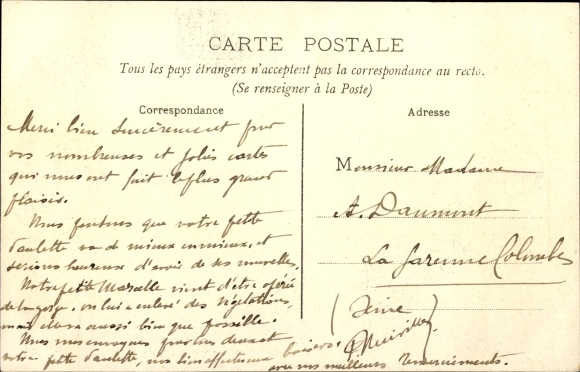 CARTE POSTALE
Tous les pays étrangers n'acceptent pas la correspondance au recto.
(Se renseigner à la Poste)
Correspondance
Adresse
Merci bien sincèrement pour
vos nombreuses et jolies cartes
qui nous ont fait le plus grand
plaisir.
que votre petite
Paulette va de mieux en mieux, et
serions heureux d'avoir de ses nouvelles.
Notre petite Marcelle vient d'être opérée
de la gorge, on lui a enlevé des végétations,
mais elle va aussi bien que possible.
Nous nous
votre petite Paulette, nos bien affectueux baisers
avec nos meilleurs remerciements.
Monsieur Madame
A. Daumont
La Garenne Colombes
(Seine)